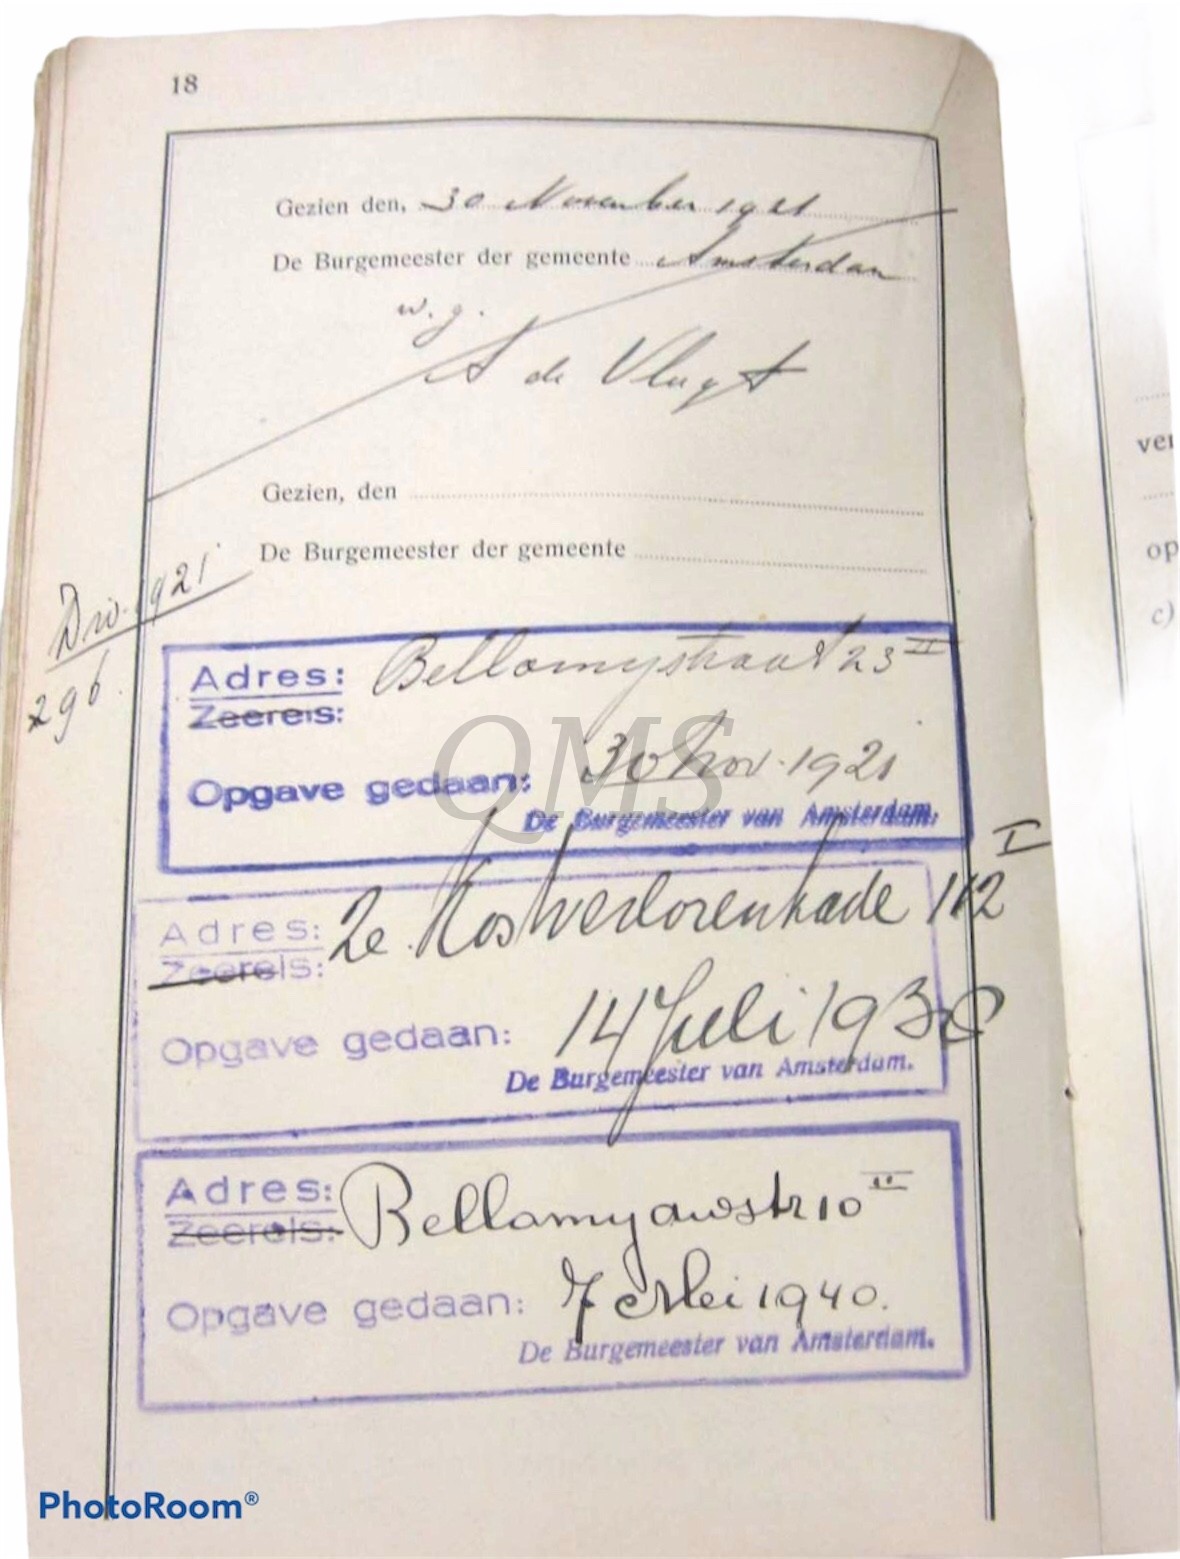 18
Gezien den, 30 November 1921
De Burgemeester der gemeente Amsterdam
w. g.
de Vlugt
Gezien, den
De Burgemeester der gemeente
1921
296.
Adres: Bellamystraat 23 II
Zeereis:
Opgave gedaan: 30 Nov. 1921
De Burgemeester van Amsterdam.
QMS
Adres: 2e Kostverlorenkade 112 I
Zeereis:
Opgave gedaan: 14 Juli 1938
De Burgemeester van Amsterdam.
Adres: Bellamydwstr 10 II
Zeereis:
Opgave gedaan: 7 Mei 1940.
De Burgemeester van Amsterdam.
ver
op
c)
PhotoRoom®